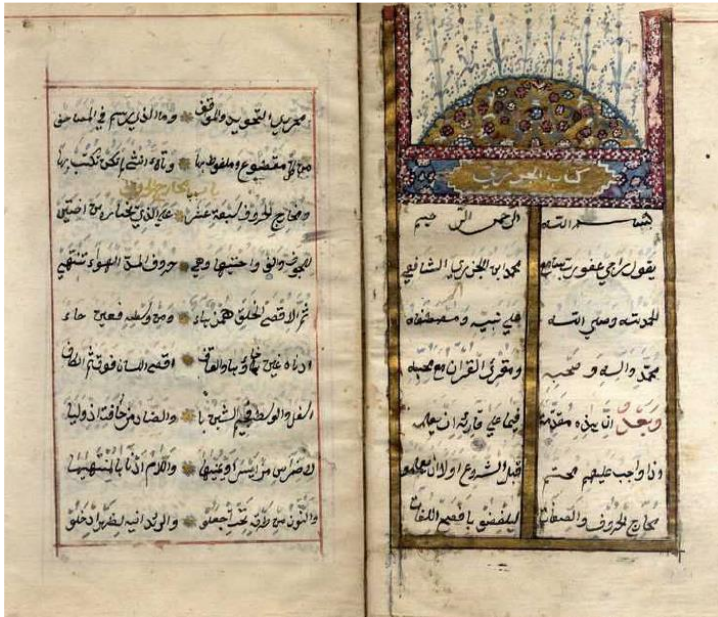 كتاب الجزري
بسم الله الرحمن الرحيم
يقول راجي عفو رب سامع محمد ابن الجزري الشافعي
الحمد لله وصلي الله علي نبيه ومصطفاه
محمد واله وصحبه ومقرئ القران مع محبه
وبعد ان هذه مقدمة فيما علي قارئه ان يعلمه
اذ واجب عليهم محتم قبل الشروع اولا ان يعلموا
مخارج الحروف والصفات ليلفظوا بافصح اللغات
محرري التجويد والمواقف وما الذي رسم في المصاحف
من كل مقطوع بها وتاء انثى لم تكن تكتب بها
باب مخارج الحروف
ومخارج الحروف سبعة عشر علي الذي يختاره من اختبر
للجوف الف واختيها وهي حروف المد للهواء تنتهي
ثم لاقصي الحلق همز هاء ومن وسطه فعين حاء
ادناه غين خاؤها والقاف اقصي اللسان فوق ثم الكاف
اسفل والوسط فجيم الشين يا والضاد من حافته اذ وليا
لاضراس من ايسر او يمنيها واللام ادناها لمنتهيها
والنون من طرفه تحت اجعلوا والرا يدانيه لظهر ادخلوا